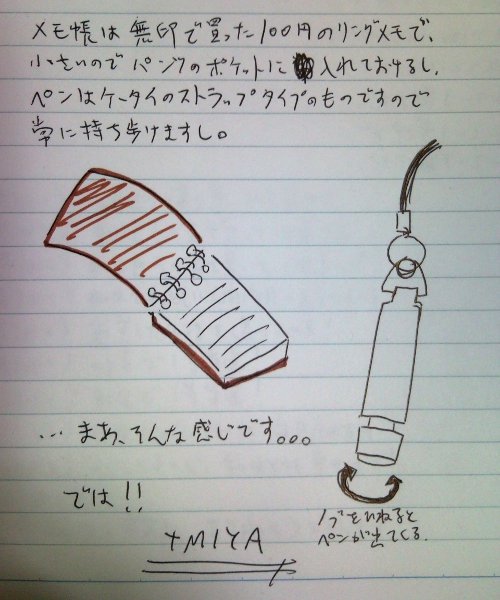 メモ帳は無印で買った100円のリングメモで、
小さいのでパンツのポケットに入れておけるし、
ペンはケータイのストラップタイプのものですので
常に持ち歩けますし。
… まあ、そんな感じです。。。
では!!
ノブをひねると
ペンが出てくる。
+MIYA